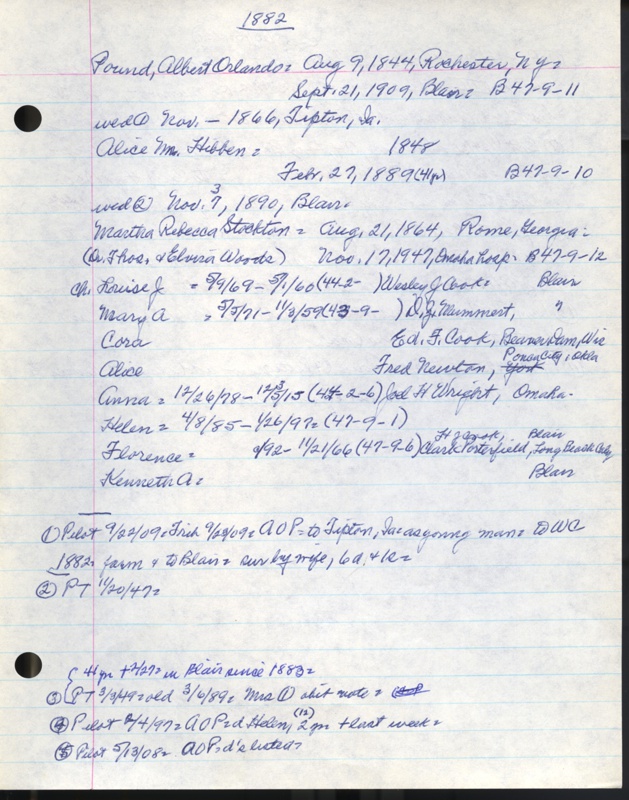 1882
Pound, Albert Orlando = Aug 9, 1844, Rochester, Ny =
Sept. 21, 1909, Blair = B47-9-11
wed ① Nov. — 1866, Tipton, Ia.
Alice M. Hibben = 1848
Febr. 27, 1889 (41yr) B47-9-10
wed ② Nov. 7, 3 1890, Blair.
Martha Rebecca Stockton = Aug. 21, 1864, Rome, Georgia =
(D. Thos. & Elvira Woods) Nov. 17, 1947, Omaha Hosp. = B47-9-12
ch. Louise J = 5/9/69 - 5/1/60 (442- ) Wesley J Cook = Blair
Mary A = 5/5/71 - 11/3/59 (43-9- ) D.J. Mummert, "
Cora Ed. F. Cook, Beaver Dam, Wis
Alice Fred Newton, York Ponca City, Okla
Anna = 12/26/78 - 12/3/15 (44-2-6) Joel H Wright, Omaha.
Helen = 4/8/85 - 1/26/97 = (47-9-1)
Florence = /92 - 11/21/66 (47-9-6) Clark Porterfield, Long Beach Calif
H J Cook, Blair
Kenneth A = Blair
① Pilot 9/22/09 = Trib 9/23/09 = AOP = to Tipton, Ia as young man = to WC
1882 = farm & to Blair = surv by wife, 6d, & K =
② PT 11/20/47 =
41 yr + 2/27 = in Blair since 1883 =
③ PT 3/3/49 = old 3/6/89 = Mrs ① obit note =
④ Pilot 2/4/97 = AOP = d Helen, (12) 2 yr + last week =
⑤ Pilot 5/13/08 = AOP = d's listed =